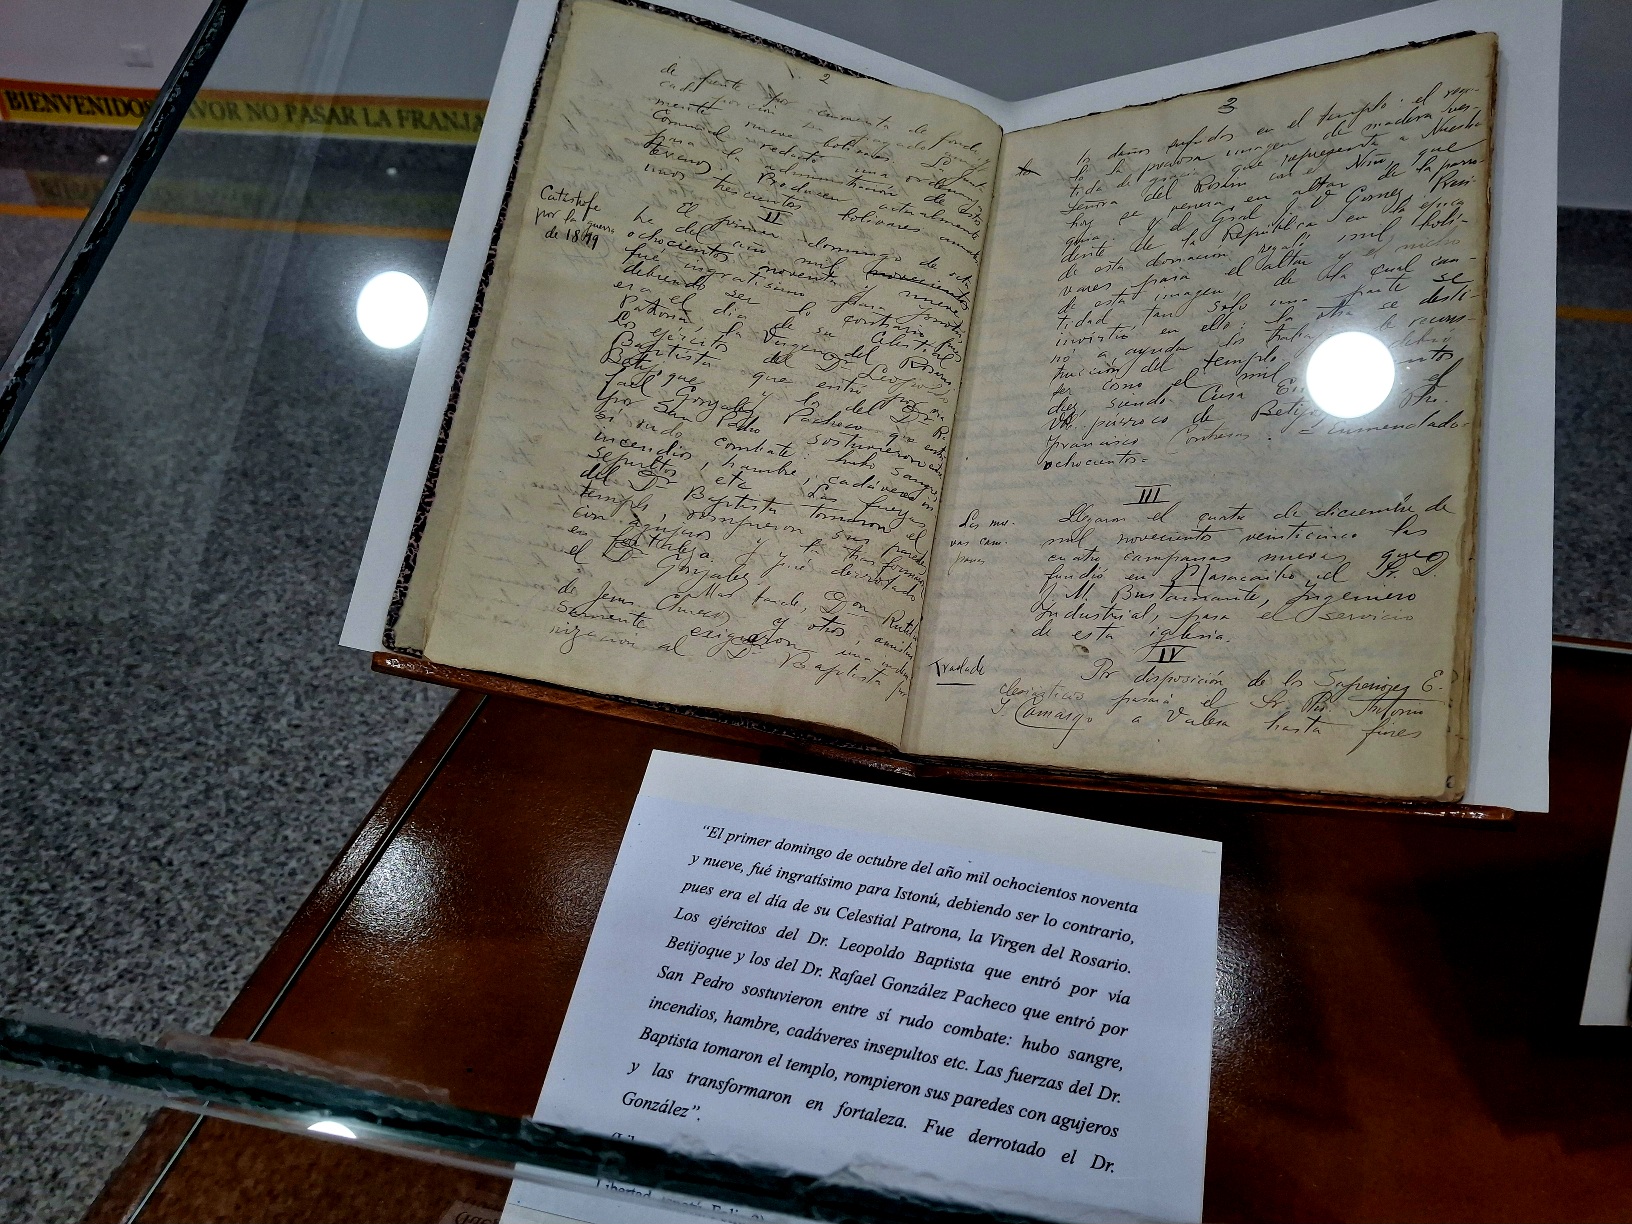 BIENVENIDOS FAVOR NO PASAR LA FRANJA
2
de fuente por cuenta de
cada porción
mente nueve bolívares. La Junta
Comunal redactó una ordenanza
para la administración de estos
terrenos. Producen actualmente
unos trescientos bolívares anuales
II
Catástrofe
por la guerra
de 1899
El primer domingo de octu-
bre del año mil novecientos
ochocientos noventa y nueve
fué ingratísimo para
debiendo ser lo contrario, pues
era el día de su Celestial
Patrona, la Virgen del Rosario.
Los ejércitos del Dr. Leopoldo
Baptista que entró por vía
Betijoque y los del Dr. Ra-
fael González Pacheco que entró
por San Pedro sostuvieron entre
sí rudo combate: hubo sangre,
incendios, hambre, cadáveres in-
sepultos etc. Las fuerzas
del Dr. Baptista tomaron el
templo, rompieron sus paredes
con agujeros y las transformaron
en fortaleza y fué derrotado
el Dr. González.
Más tarde, Don
de Jesús y otros,
exigieron una indem-
nización al Dr. Baptista por
3
los daños sufridos en el templo: el
to la preciosa imagen de madera ves-
tida de que representa a Nuestra
Señora del Rosario con el Niño, que
hoy se venera en altar de la parro-
quia y el Gral J. V. Gómez, Presi-
dente de la República en la época
de esta donación regaló mil bolí-
vares para el altar y el nicho
de esta imagen, de la cual can-
tidad tan sólo una parte se
invirtió en ello: la otra se desti-
nó a ayuda los trabajos de recons-
trucción del templo
ser como el mil
diez, siendo Cura
párroco de Betijoque Pbro.
Francisco Contreras. = Enmendado=
ochocientos=
III
Las nue-
vas cam-
panas
Llegaron el cuatro de diciembre de
mil novecientos veinticinco las
cuatro campanas nuevas que
fundió en Maracaibo el Sr. D.
J. M. Bustamante, Ingeniero
Industrial, para el servicio
de esta iglesia.
IV
Traslado
Por disposición de los Superiores E-
clesiásticos pasará el Sr. Pbro. Antonio
J. Camargo a Valera hasta fines
“El primer domingo de octubre del año mil ochocientos noventa
y nueve, fué ingratísimo para Istonú, debiendo ser lo contrario,
pues era el día de su Celestial Patrona, la Virgen del Rosario.
Los ejércitos del Dr. Leopoldo Baptista que entró por vía
Betijoque y los del Dr. Rafael González Pacheco que entró por
San Pedro sostuvieron entre sí rudo combate: hubo sangre,
incendios, hambre, cadáveres insepultos etc. Las fuerzas del Dr.
Baptista tomaron el templo, rompieron sus paredes con agujeros
y las transformaron en fortaleza. Fue derrotado el Dr.
González”.